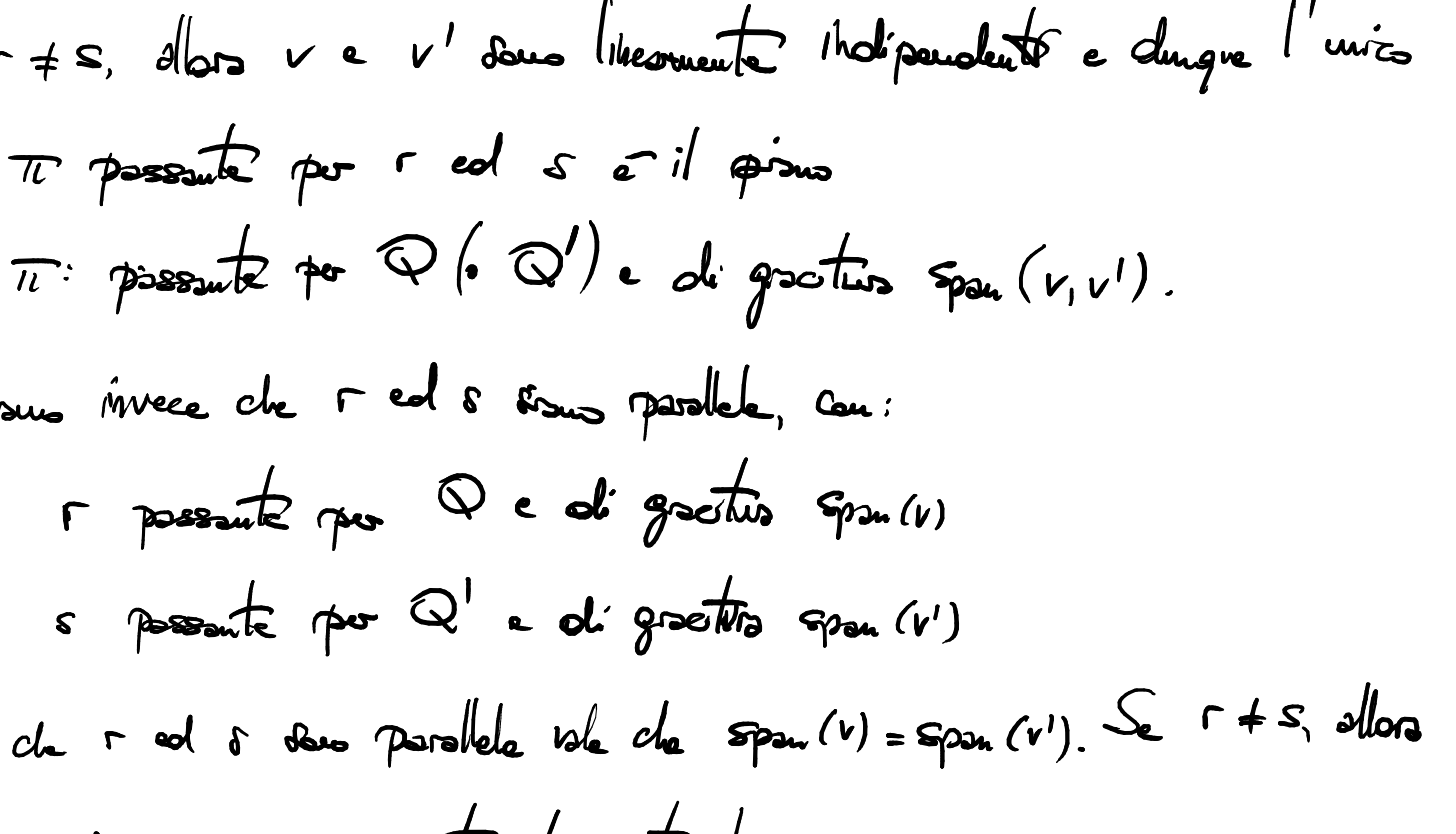 ≠ s, allora v e v' sono linearmente indipendenti e dunque l'unico
π passante per r ed s è il piano
π: passante per Q (o Q') e di giacitura span (v, v').
invece che r ed s siano parallele, con:
r passante per Q e di giacitura span (v)
s passante per Q' e di giacitura span (v')
che r ed s sono parallele vale che span (v) = span (v'). Se r ≠ s, allora